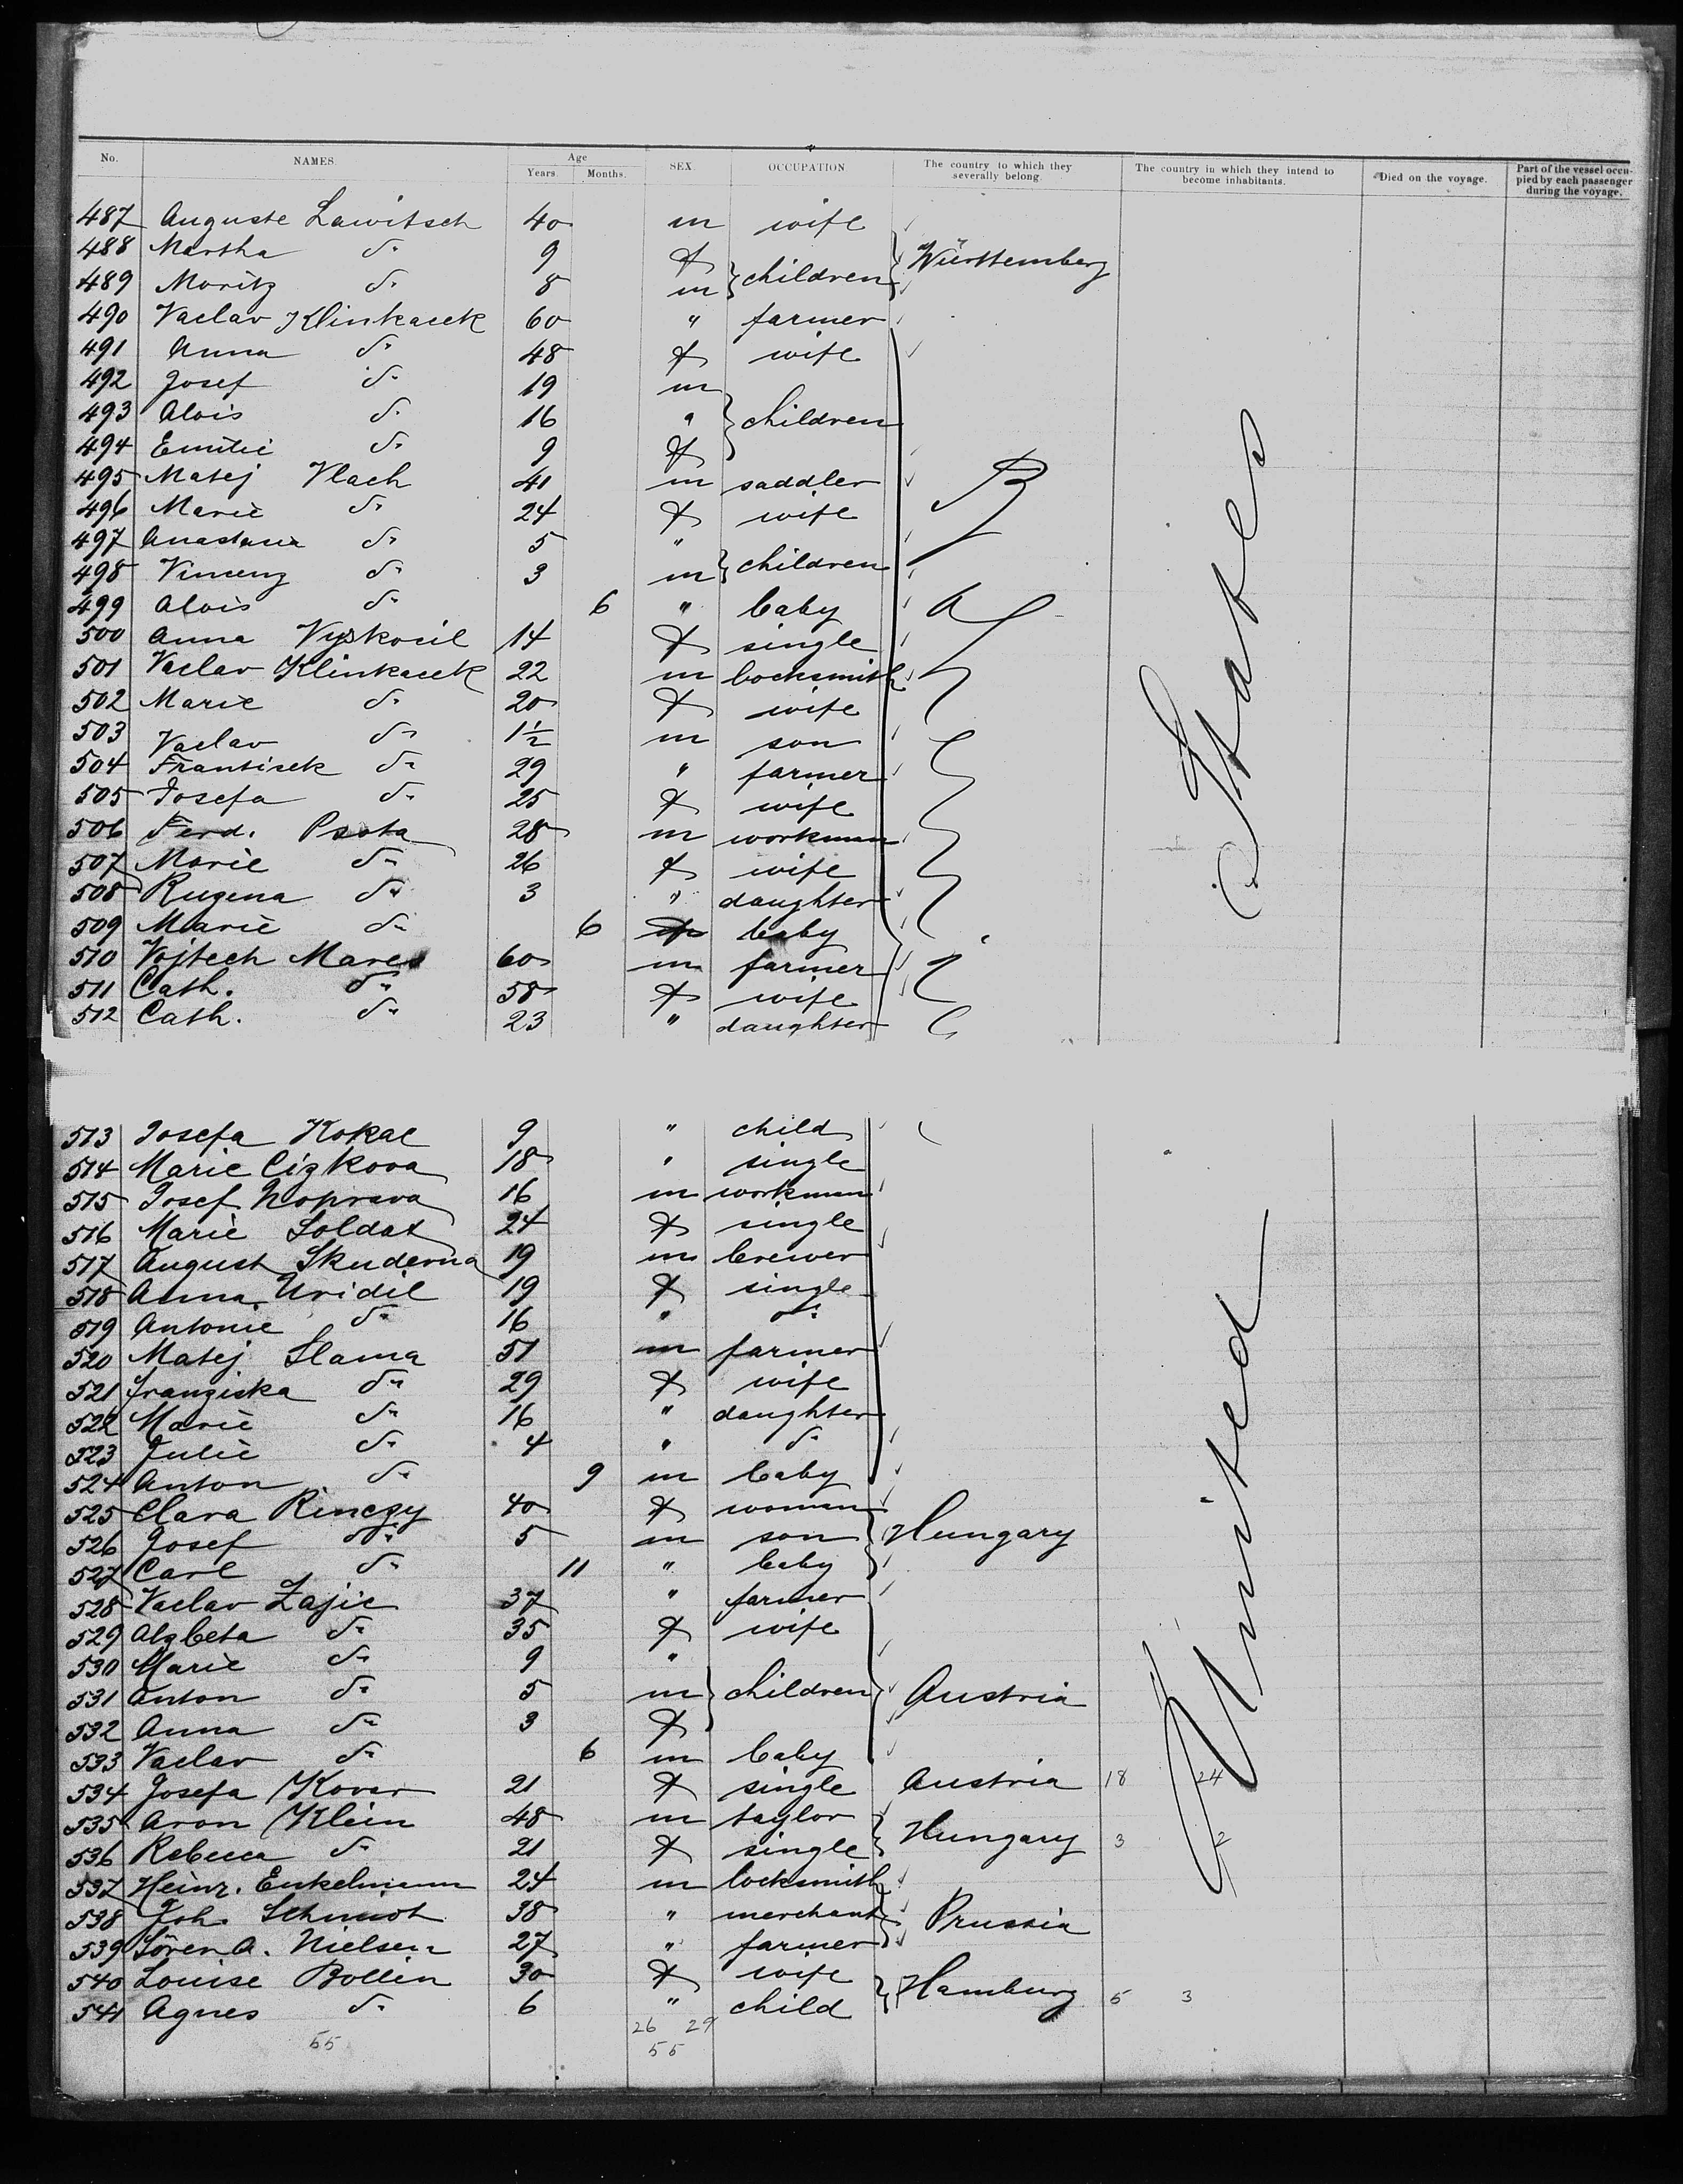 No. NAMES. Age Years. Months. SEX. OCCUPATION. The country to which they severally belong. The country in which they intend to become inhabitants. Died on the voyage. Part of the vessel occupied by each passenger during the voyage.
487 Auguste Lawitsch 40 m wife
488 Martha do 9 f children Württemberg
489 Moritz do 8 m
490 Vaclav Klinkacek 60 " farmer
491 Anna do 48 f wife
492 Josef do 19 m
493 Alois do 16 " children
494 Emilie do 9 f
495 Matej Vlach 41 m saddler
496 Marie do 24 f wife
497 Anastasia do 5 "
498 Vincenz do 3 m children
499 Alois do 6 " baby
500 Anna Vyskocil 14 f single
501 Vaclav Klinkacek 22 m locksmith
502 Marie do 20 f wife
503 Vaclav do 1½ m son
504 Frantisek do 29 " farmer
505 Josefa do 25 f wife
506 Ferd. Psota 28 m workman
507 Marie do 26 f wife
508 Rugena do 3 " daughter
509 Marie do 6 f baby
510 Vojtech Mares 60 m farmer
511 Cath. do 58 f wife
512 Cath. do 23 " daughter
513 Josefa Kokac 9 " child
514 Marie Cizkova 18 " single
515 Josef Noprava 16 m workman
516 Marie Soldat 24 f single
517 August Skuderna 19 m brewer
518 Anna Uridil 19 f single
519 Antonie do 16 " do
520 Matej Slama 51 m farmer
521 Franziska do 29 f wife
522 Marie do 16 " daughter
523 Julie do 4 " do
524 Anton do 9 m baby
525 Clara Rinczy 40 f woman
526 Josef do 5 m son Hungary
527 Carl do 11 " baby
528 Vaclav Zajic 37 " farmer
529 Alzbeta do 35 f wife
530 Marie do 9 "
531 Anton do 5 m children Austria
532 Anna do 3 f
533 Vaclav do 6 m baby
534 Josefa Kovar 21 f single Austria 18 24
535 Aron Klein 48 m taylor
536 Rebecca do 21 f single Hungary 3 2
537 Heinr. Enkelmann 24 m locksmith
538 Joh. Schmidt 38 " merchant Prussia
539 Sören A. Nielsen 27 " farmer
540 Louise Bollin 30 f wife
541 Agnes do 6 " child Hamburg 5 3
55 26 29
55
United States